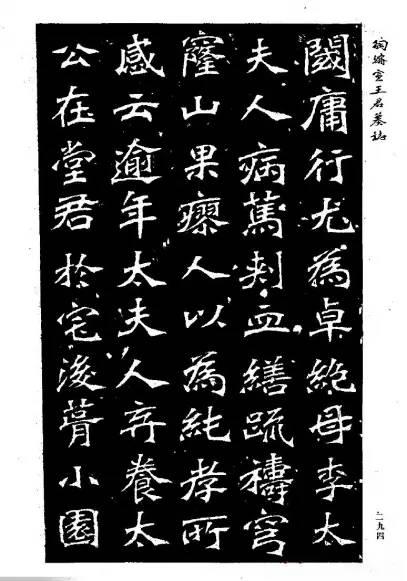 室王君墓誌
闕庸行尤為卓絕母李太
夫人病篤刺血繕疏禱穹
窿山果瘳人以為純孝所
感云逾年太夫人弃養太
公在堂君於宅後葺小園
二九四